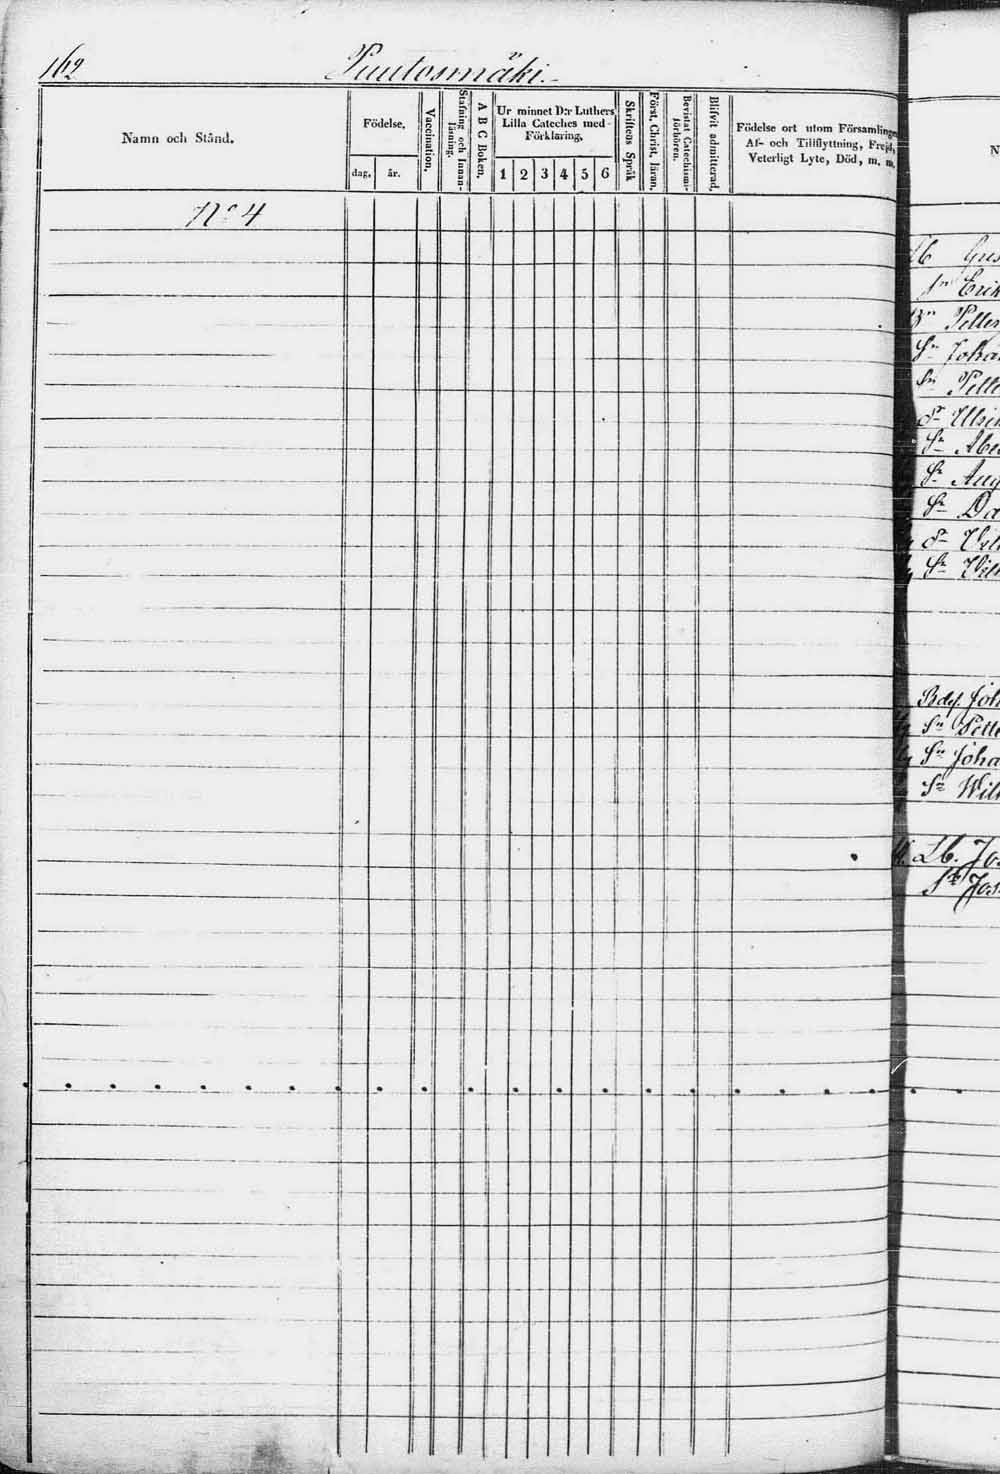 162 Puutosmäki.
Namn och Stånd.
Födelse.
dag. år.
Vaccination.
Stafning och Innanläsning.
A B C Boken.
Ur minnet D:r Luthers Lilla Cateches med Förklaring.
1 2 3 4 5 6
Skriftens Språk
Först. Christ. läran.
Bevistat Catechismiförhören.
Blifvit admitterad.
Födelse ort utom Församlingen
Af- och Tillflyttning, Frejd,
Veterligt Lyte, Död, m. m.
N:o 4
N
Erik
Petter
Sn Joha
Sn Pette
Ulrik
Sn Abe
Sn Aug
Sn Da
Sn Wil
Joh
Sn Pette
Sn Joha
Sn Wil
Lb. Jo
Sn Jos